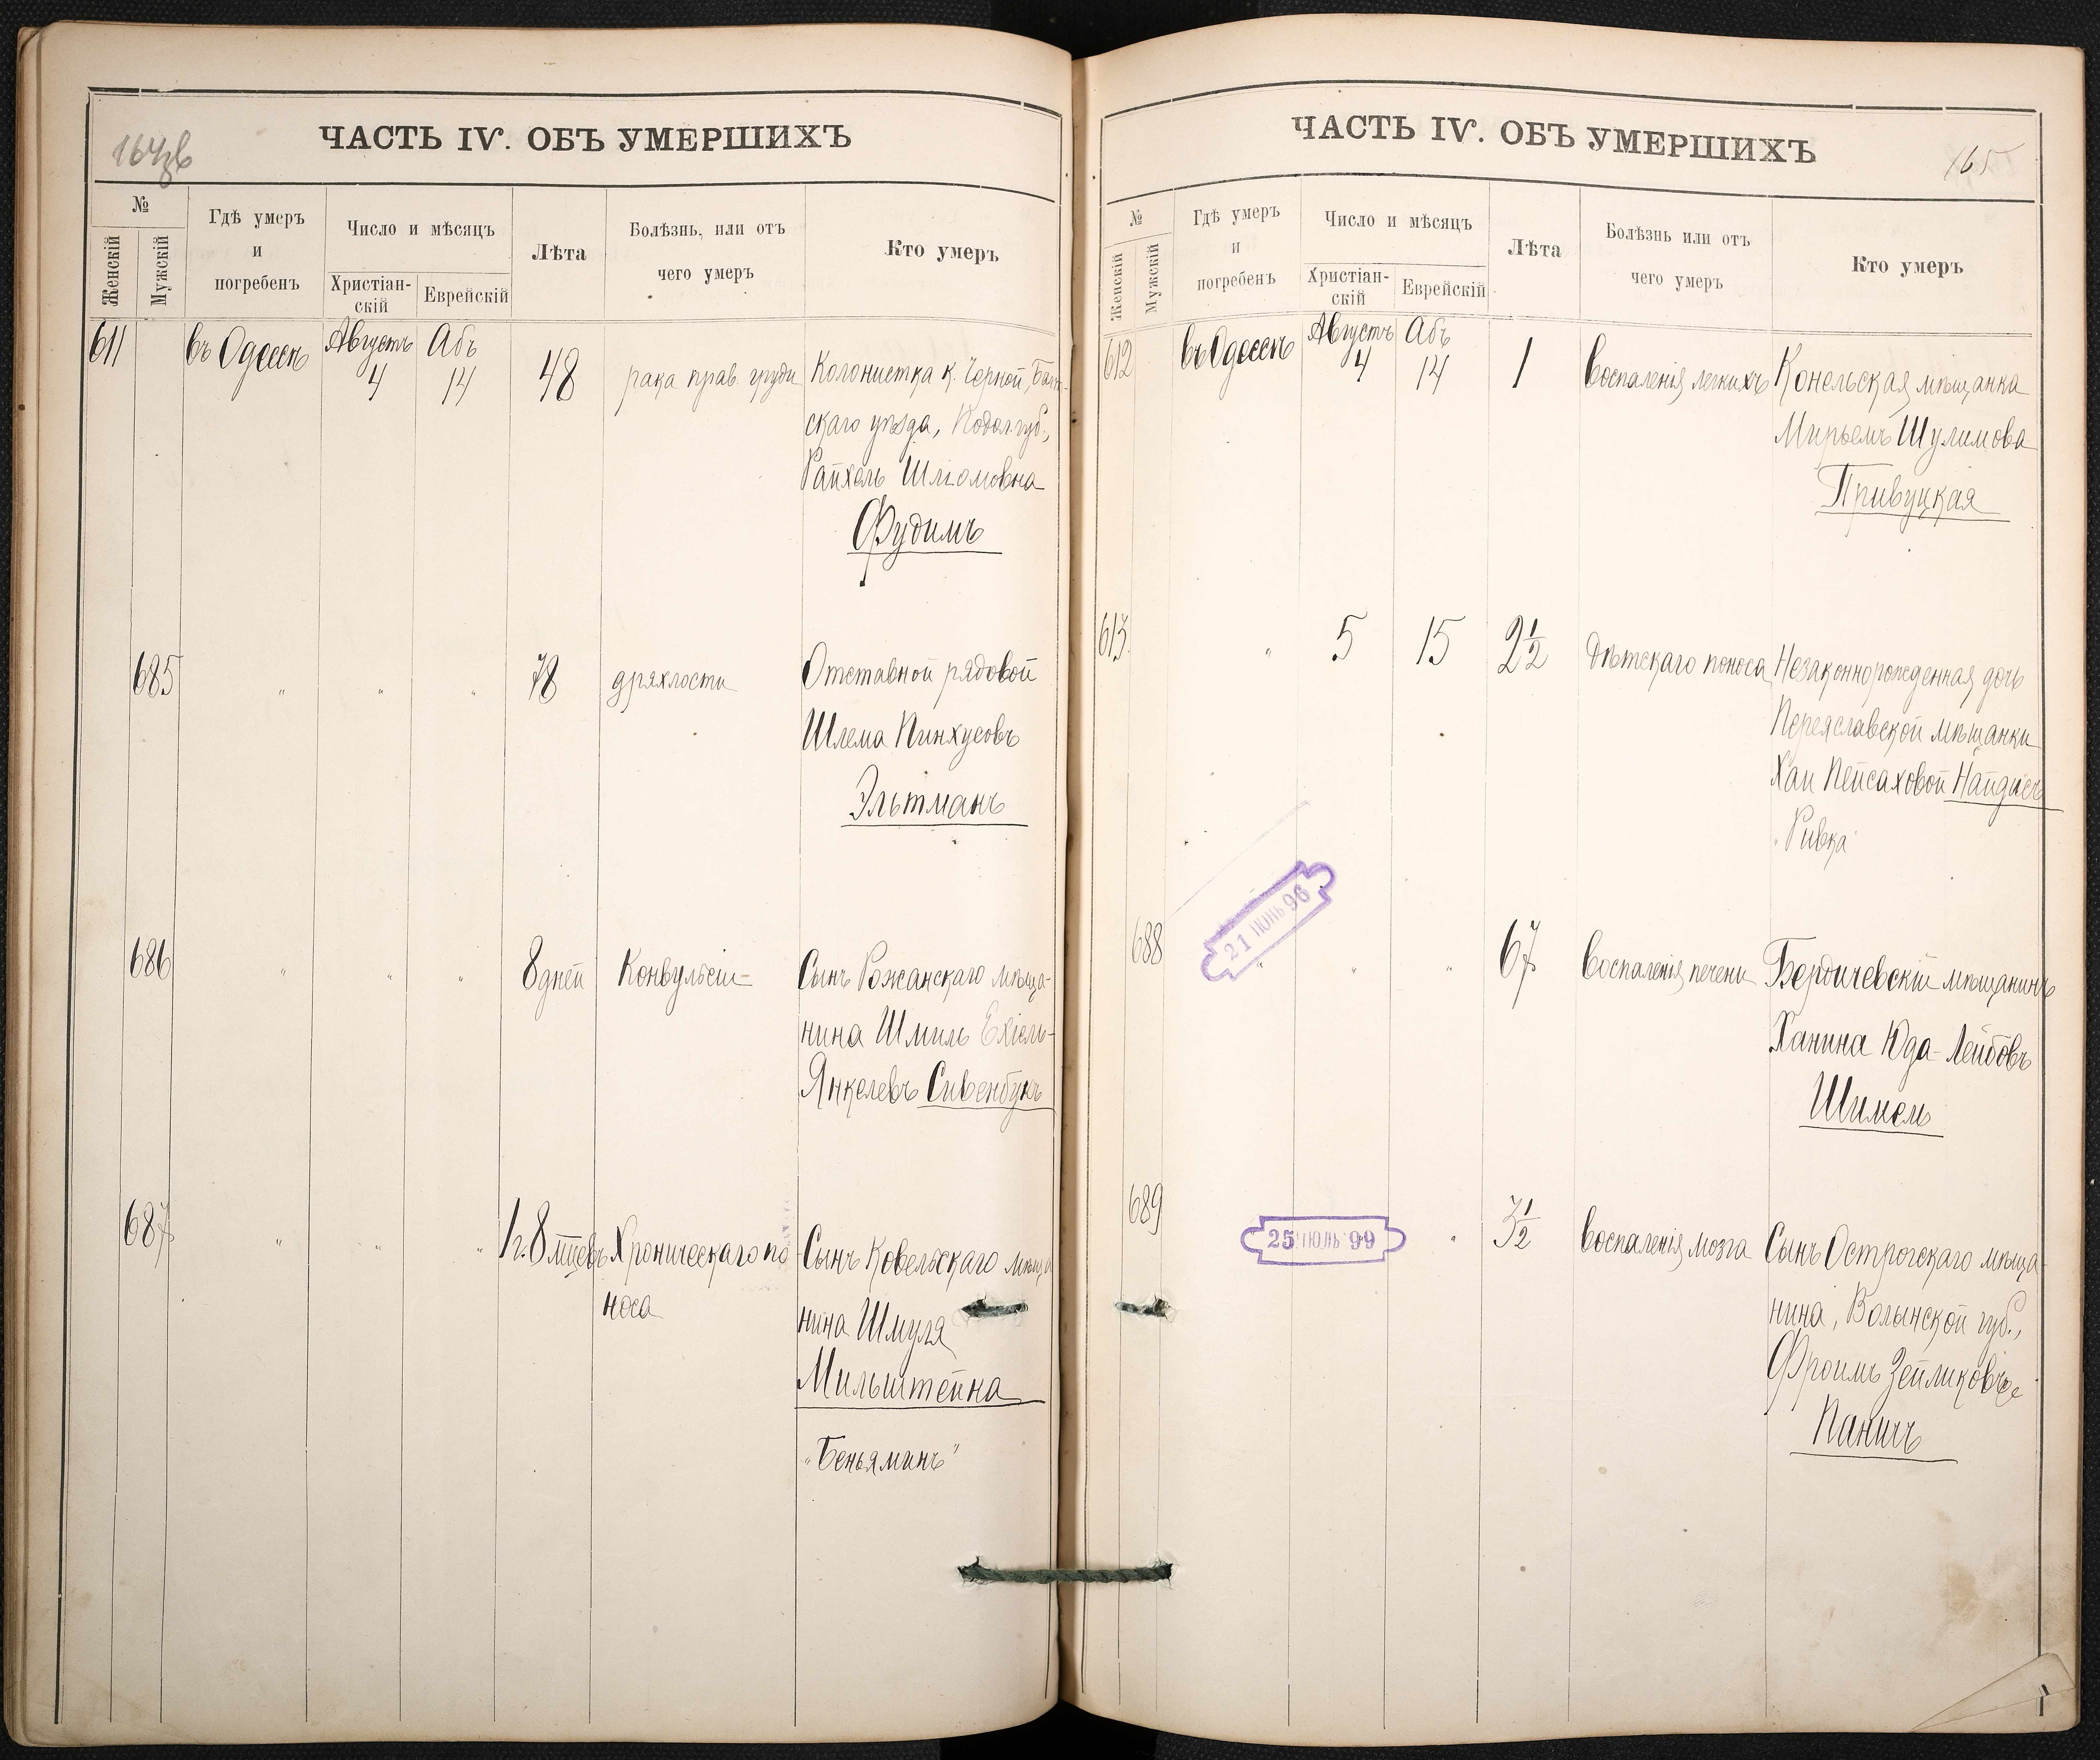 164об
ЧАСТЬ IV. ОБЪ УМЕРШИХЪ
№
Женскій
Мужскій
Гдѣ умеръ
и
погребенъ
Число и мѣсяцъ
Христіан-
скій
Еврейскій
Лѣта
Болѣзнь, или отъ
чего умеръ
Кто умеръ
611
въ Одессѣ
Августъ
4
Абъ
14
48
рака прав. груди
Колонистка к. Черной, Балт-
скаго уѣзда, Подол. губ.,
Райхель Шліомовна
Фудимъ
685
"
"
"
78
дряхлости
Отставной рядовой
Шлема Пинхусовъ
Эльтманъ
686
"
"
"
8 дней
Конвульсіи
Сынъ Рожанскаго мѣща-
нина Шмиль Ехіель-
Янкелевъ Сивенбукъ
687
"
"
"
1 г. 8 мцевъ
Хроническаго по
носа
Сынъ Ковельскаго мѣща
нина Шмуля
Мильштейна
"Беньяминъ"
ЧАСТЬ IV. ОБЪ УМЕРШИХЪ
165
№
Женскій
Мужскій
Гдѣ умеръ
и
погребенъ
Число и мѣсяцъ
Христіан-
скій
Еврейскій
Лѣта
Болѣзнь или отъ
чего умеръ
Кто умеръ
612
въ Одессѣ
Августъ
4
Абъ
14
1
воспаленія легкихъ
Конельская мѣщанка
Мирьемъ Шулимова
Привуцкая
613
"
5
15
2½
дѣтскаго поноса
Незаконнорожденная дочь
Переяславской мѣщанки
Хаи Пейсаховой Найдисъ
"Ривка"
688
21 ІЮНЬ 96
"
"
"
67
воспаленія печени
Бердичевскій мѣщанинъ
Ханина Юда-Лейбовъ
Шимель
689
25 ІЮЛЬ 99
"
3½
воспаленія мозга
Сынъ Острогскаго мѣща
нина, Волынской губ.,
Фроимъ Зейликовъ
Паничъ